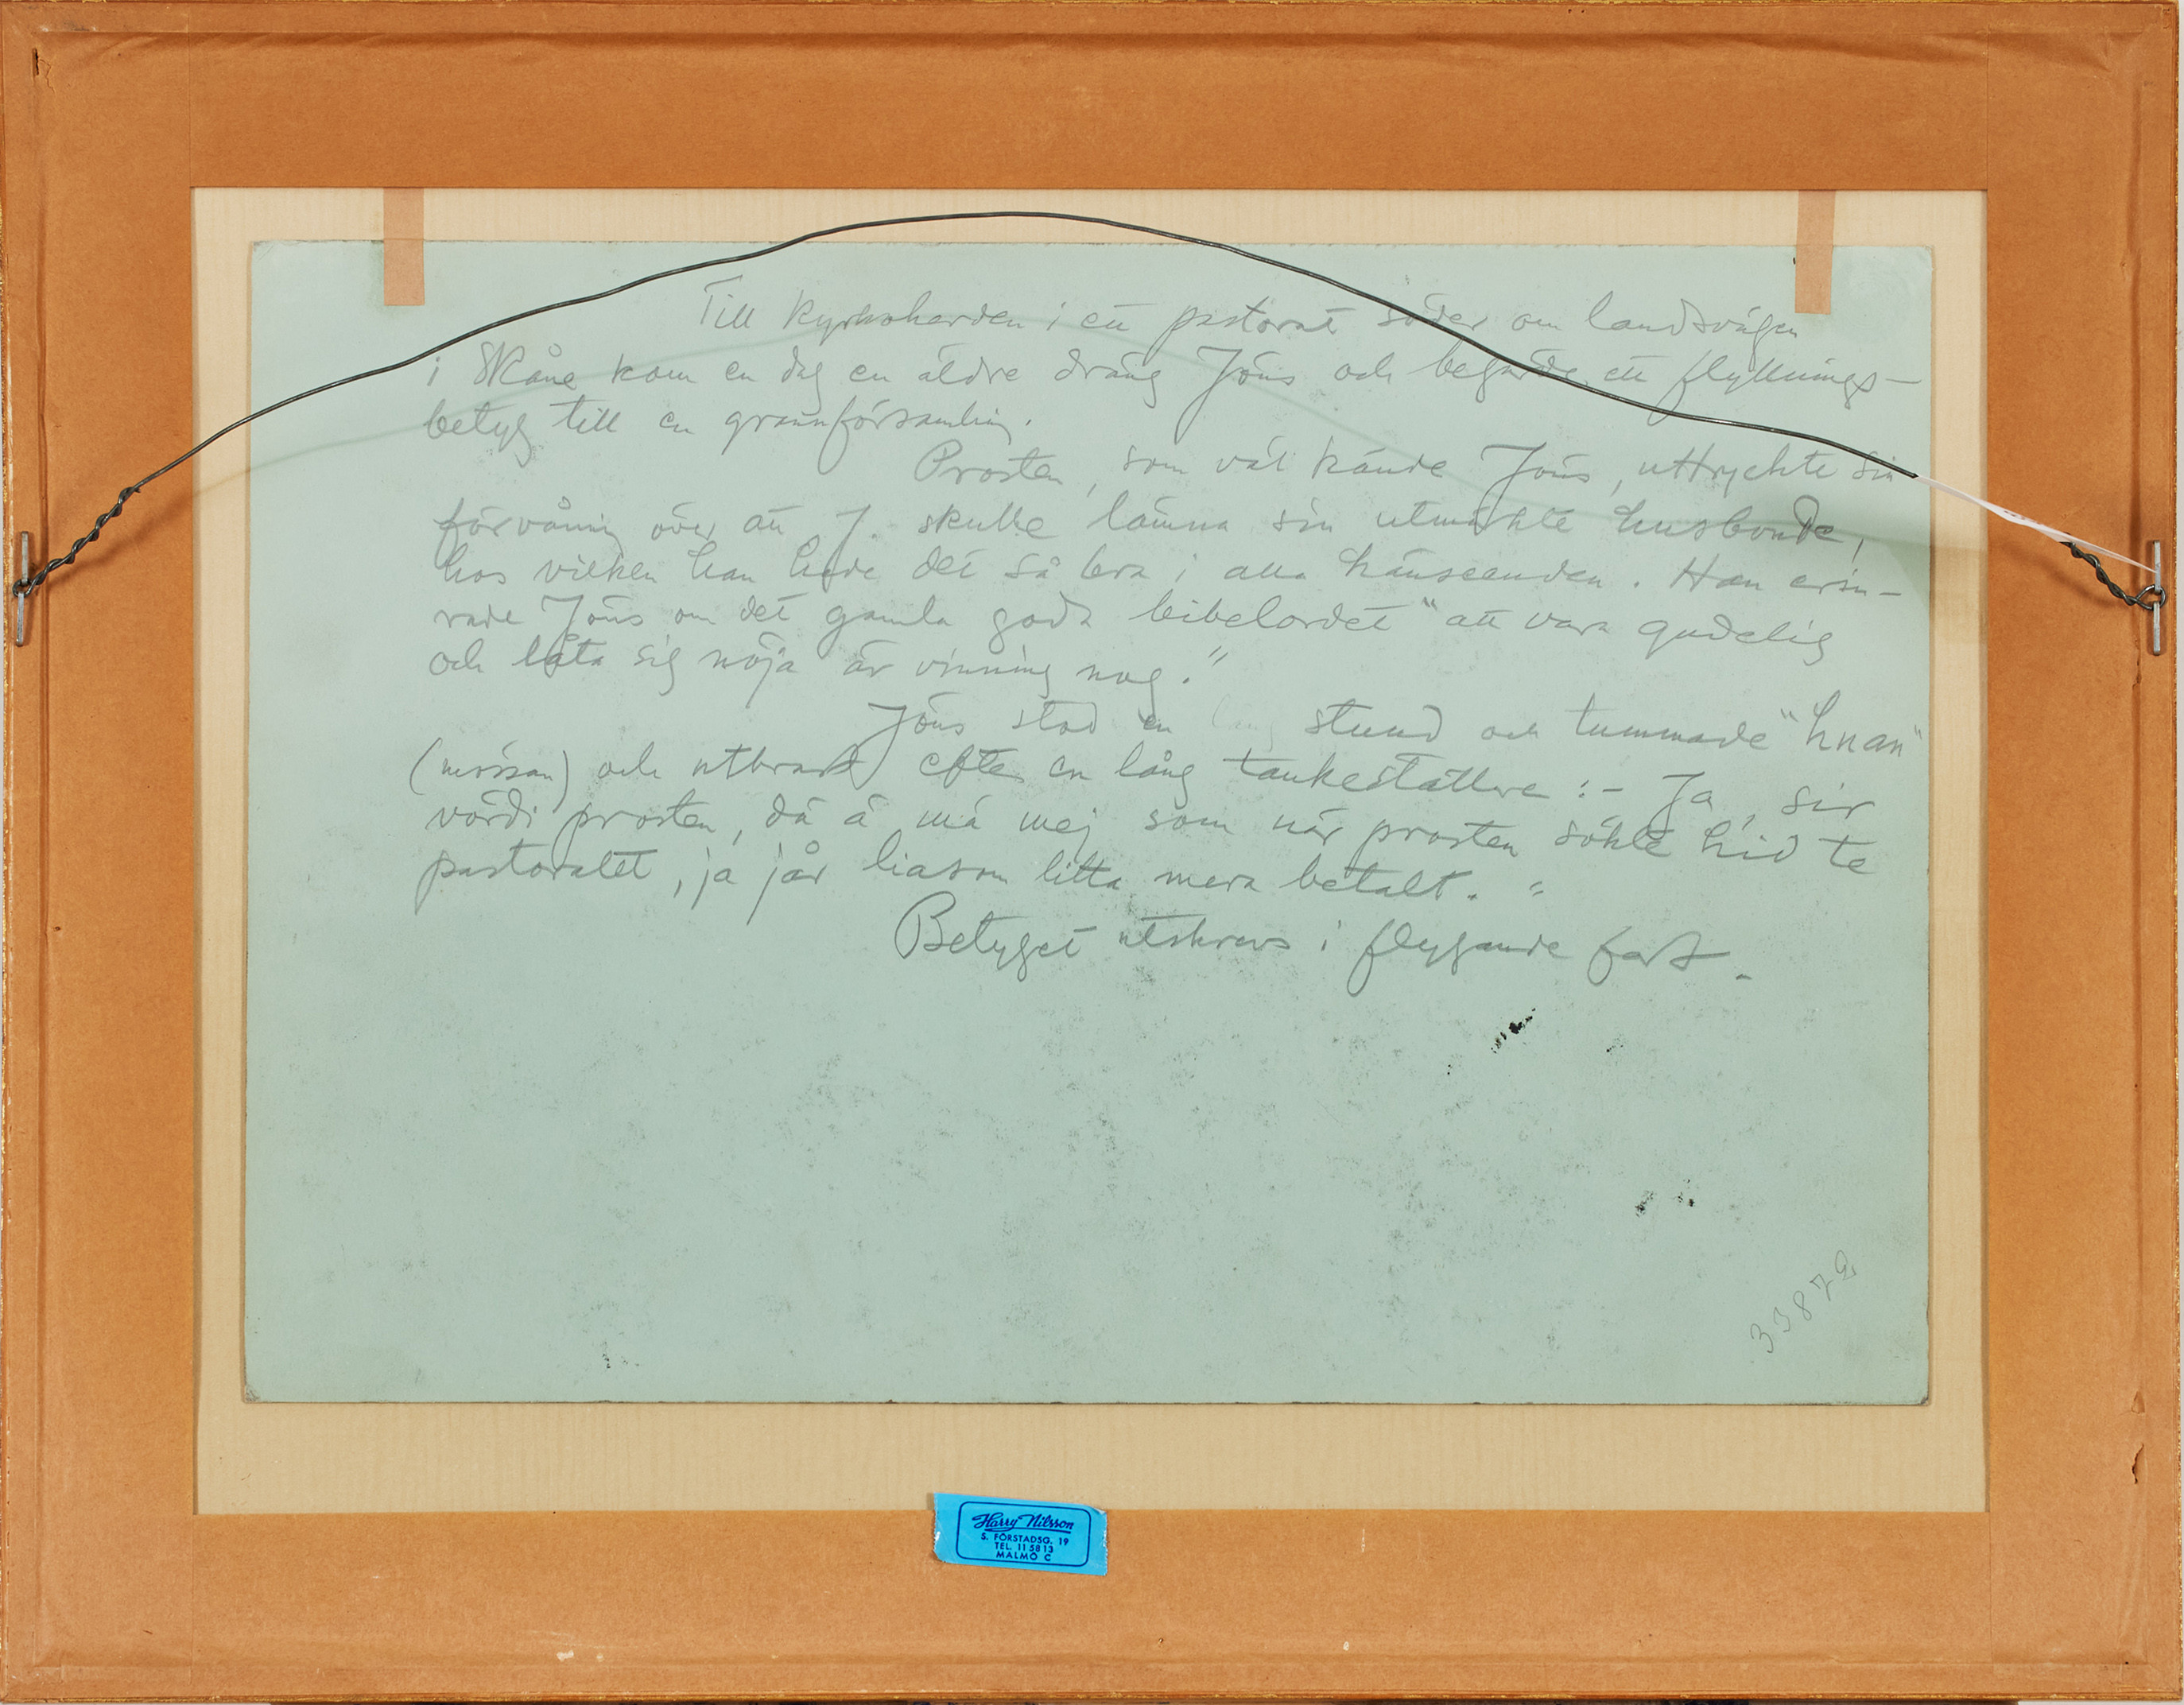 Till Kyrkoherden i ett pastorat söder om landsvägen
i Skåne kom en dag en äldre dräng Jöns och begärde ett flyttnings-
betyg till en grannförsamling.
Prosten, som väl kände Jöns, uttryckte sin
förvåning över att J. skulle lämna sin utmärkte husbonde,
hos vilken han hade det så bra i alla hänseenden. Han erin-
rade Jöns om det gamla goda bibelordet "att vara gudelig
och låta sig nöja är vinning nog."
Jöns stod en stund och tummade "huan"
(mössan) och utbrast efter en lång tankeställare :- Ja, sir
vördi prosten, dä ä má mej som när prosten sökte hid te
pastoratet, ja jår liasom litta mera betalt. "
Betyget utskrevs i flygande fart.
33872
Harry Nilsson
S. FÖRSTADSG. 19
TEL. 11 58 13
MALMÖ C